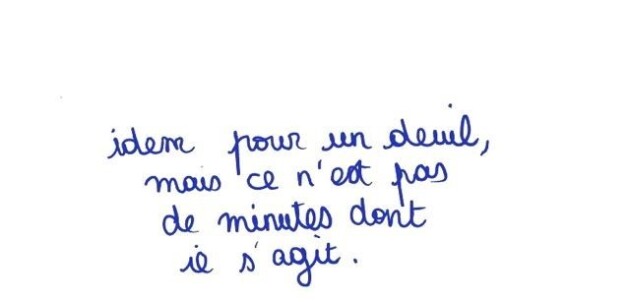 idem pour un deuil,
mais ce n'est pas
de minutes dont
il s'agit.